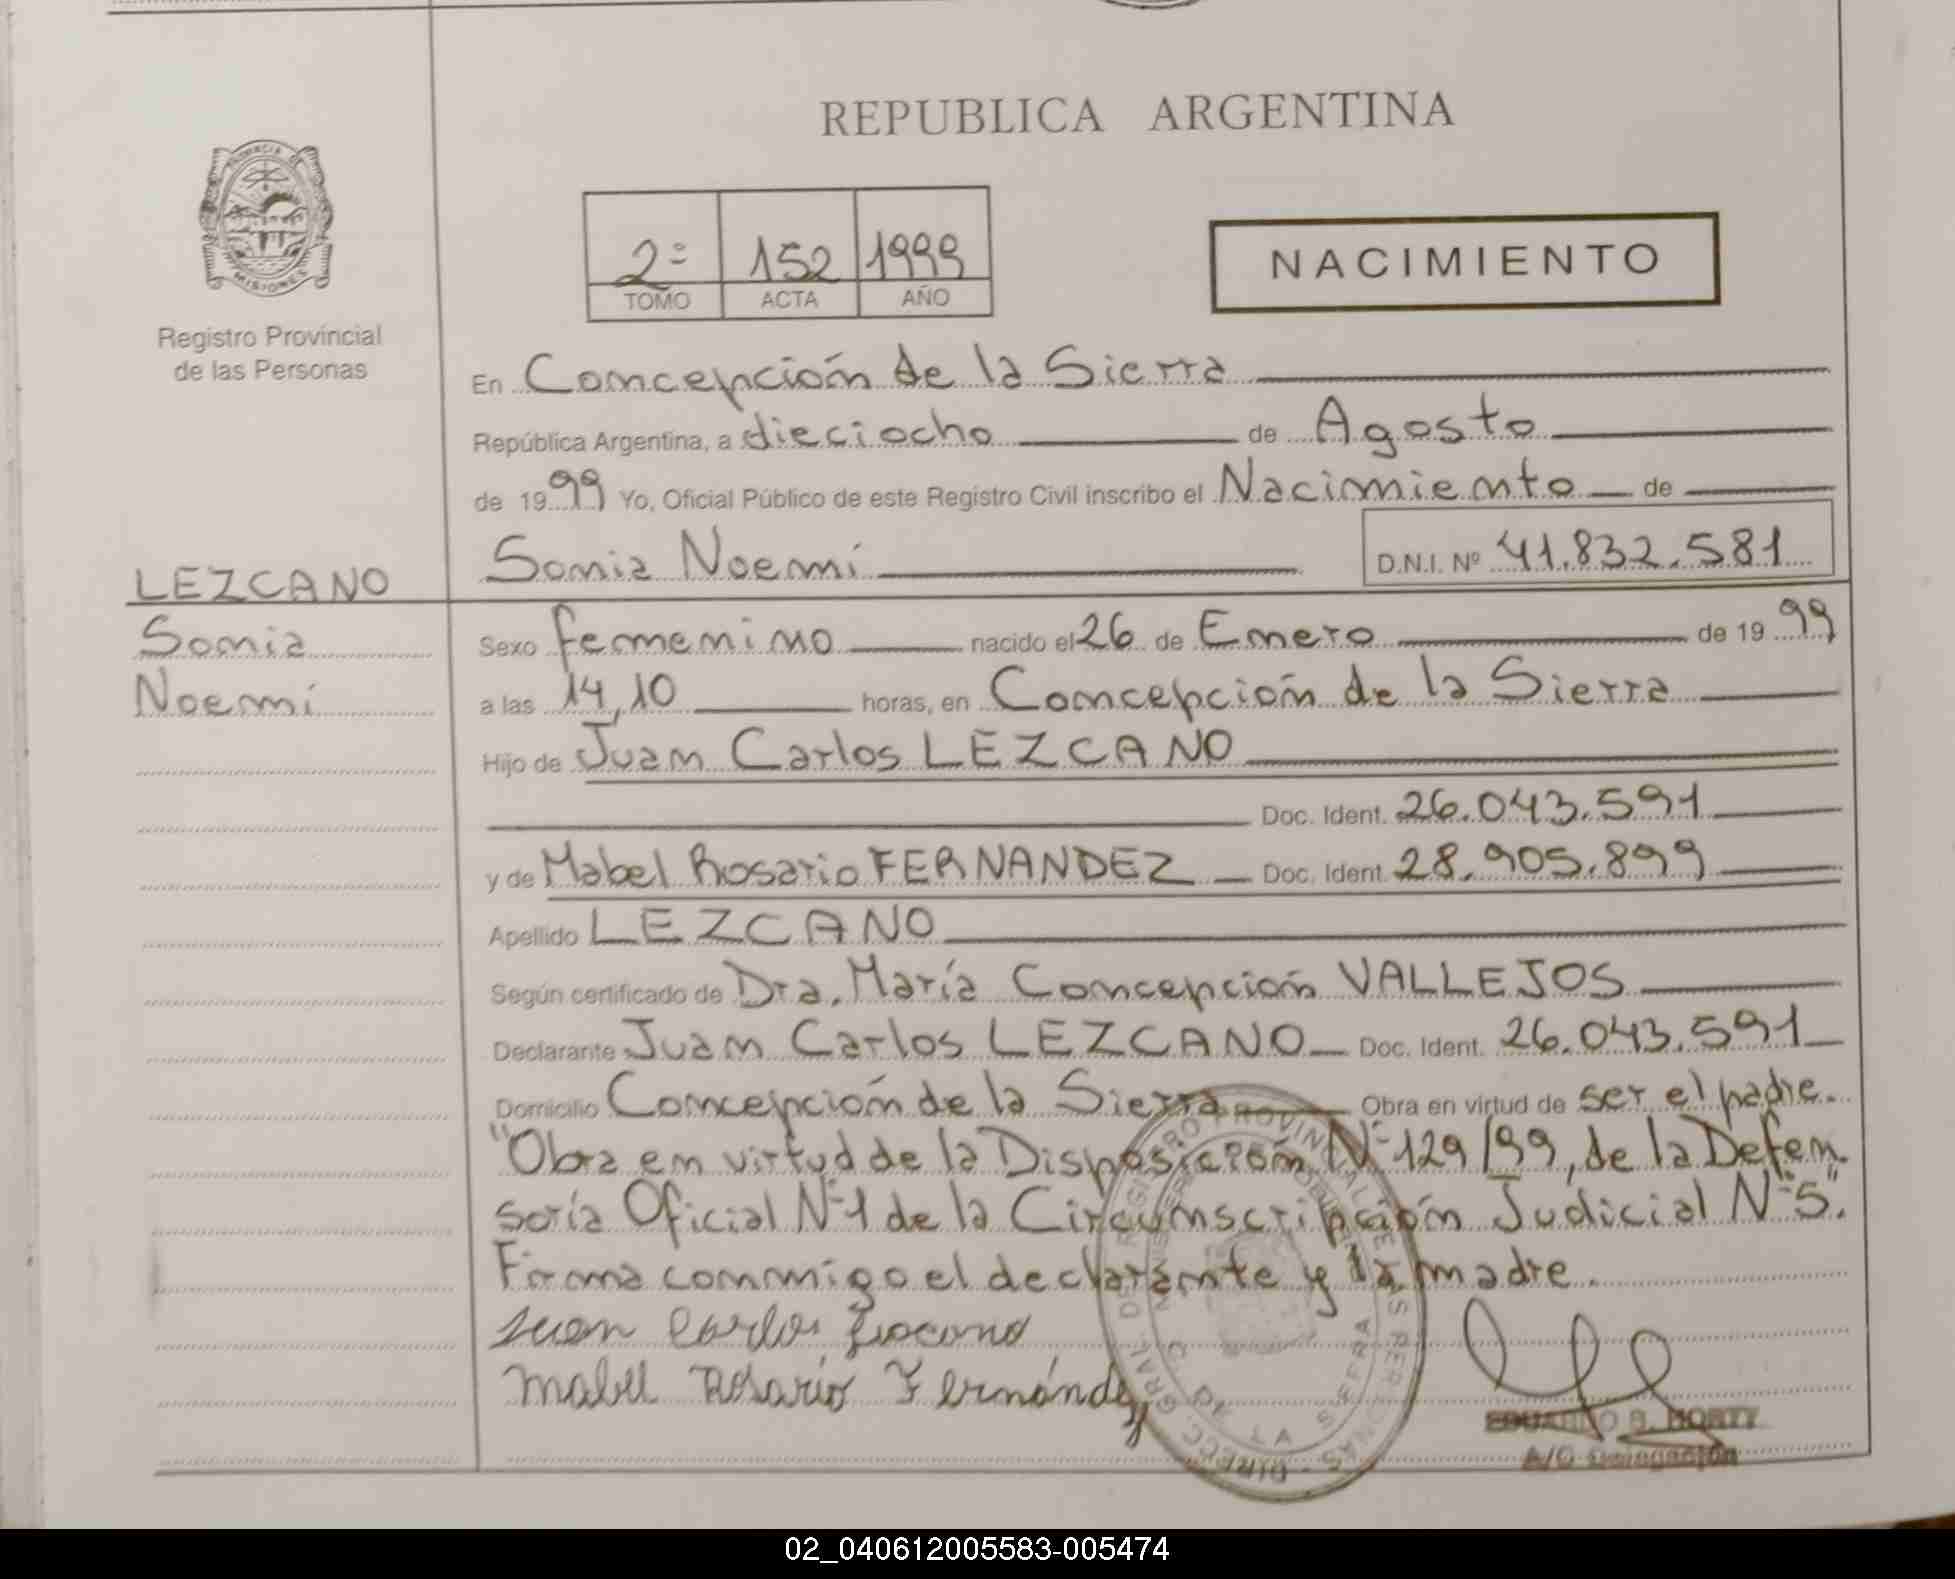 REPUBLICA ARGENTINA
PROVINCIA DE MISIONES
Registro Provincial
de las Personas
2º 152 1999
TOMO ACTA AÑO
NACIMIENTO
En Concepción de la Sierra
República Argentina, a dieciocho de Agosto
de 1999 Yo, Oficial Público de este Registro Civil inscribo el Nacimiento de
Sonia Noemí D.N.I. Nº 41.832.581
LEZCANO
Sonia
Noemí
Sexo femenino nacido el 26 de Enero de 1999
a las 14,10 horas, en Concepción de la Sierra
Hijo de Juan Carlos LEZCANO
Doc. Ident. 26.043.591
y de Mabel Rosario FERNANDEZ Doc. Ident. 28.905.899
Apellido LEZCANO
Según certificado de Dra. María Concepción VALLEJOS
Declarante Juan Carlos LEZCANO Doc. Ident. 26.043.591
Domicilio Concepción de la Sierra Obra en virtud de ser el padre.
"Obra en virtud de la Disposición Nº 129/99, de la Defen
soría Oficial Nº1 de la Circunscripción Judicial Nº "5".
Firma conmigo el declarante y la madre.
Juan Carlos
Mabel Rosario Fernández
DIRECC. GRAL. DE REGISTRO PROVINCIAL DE LAS PERSONAS
DE LA SIERRA
EDUARDO
A/C Delegación
02_040612005583-005474